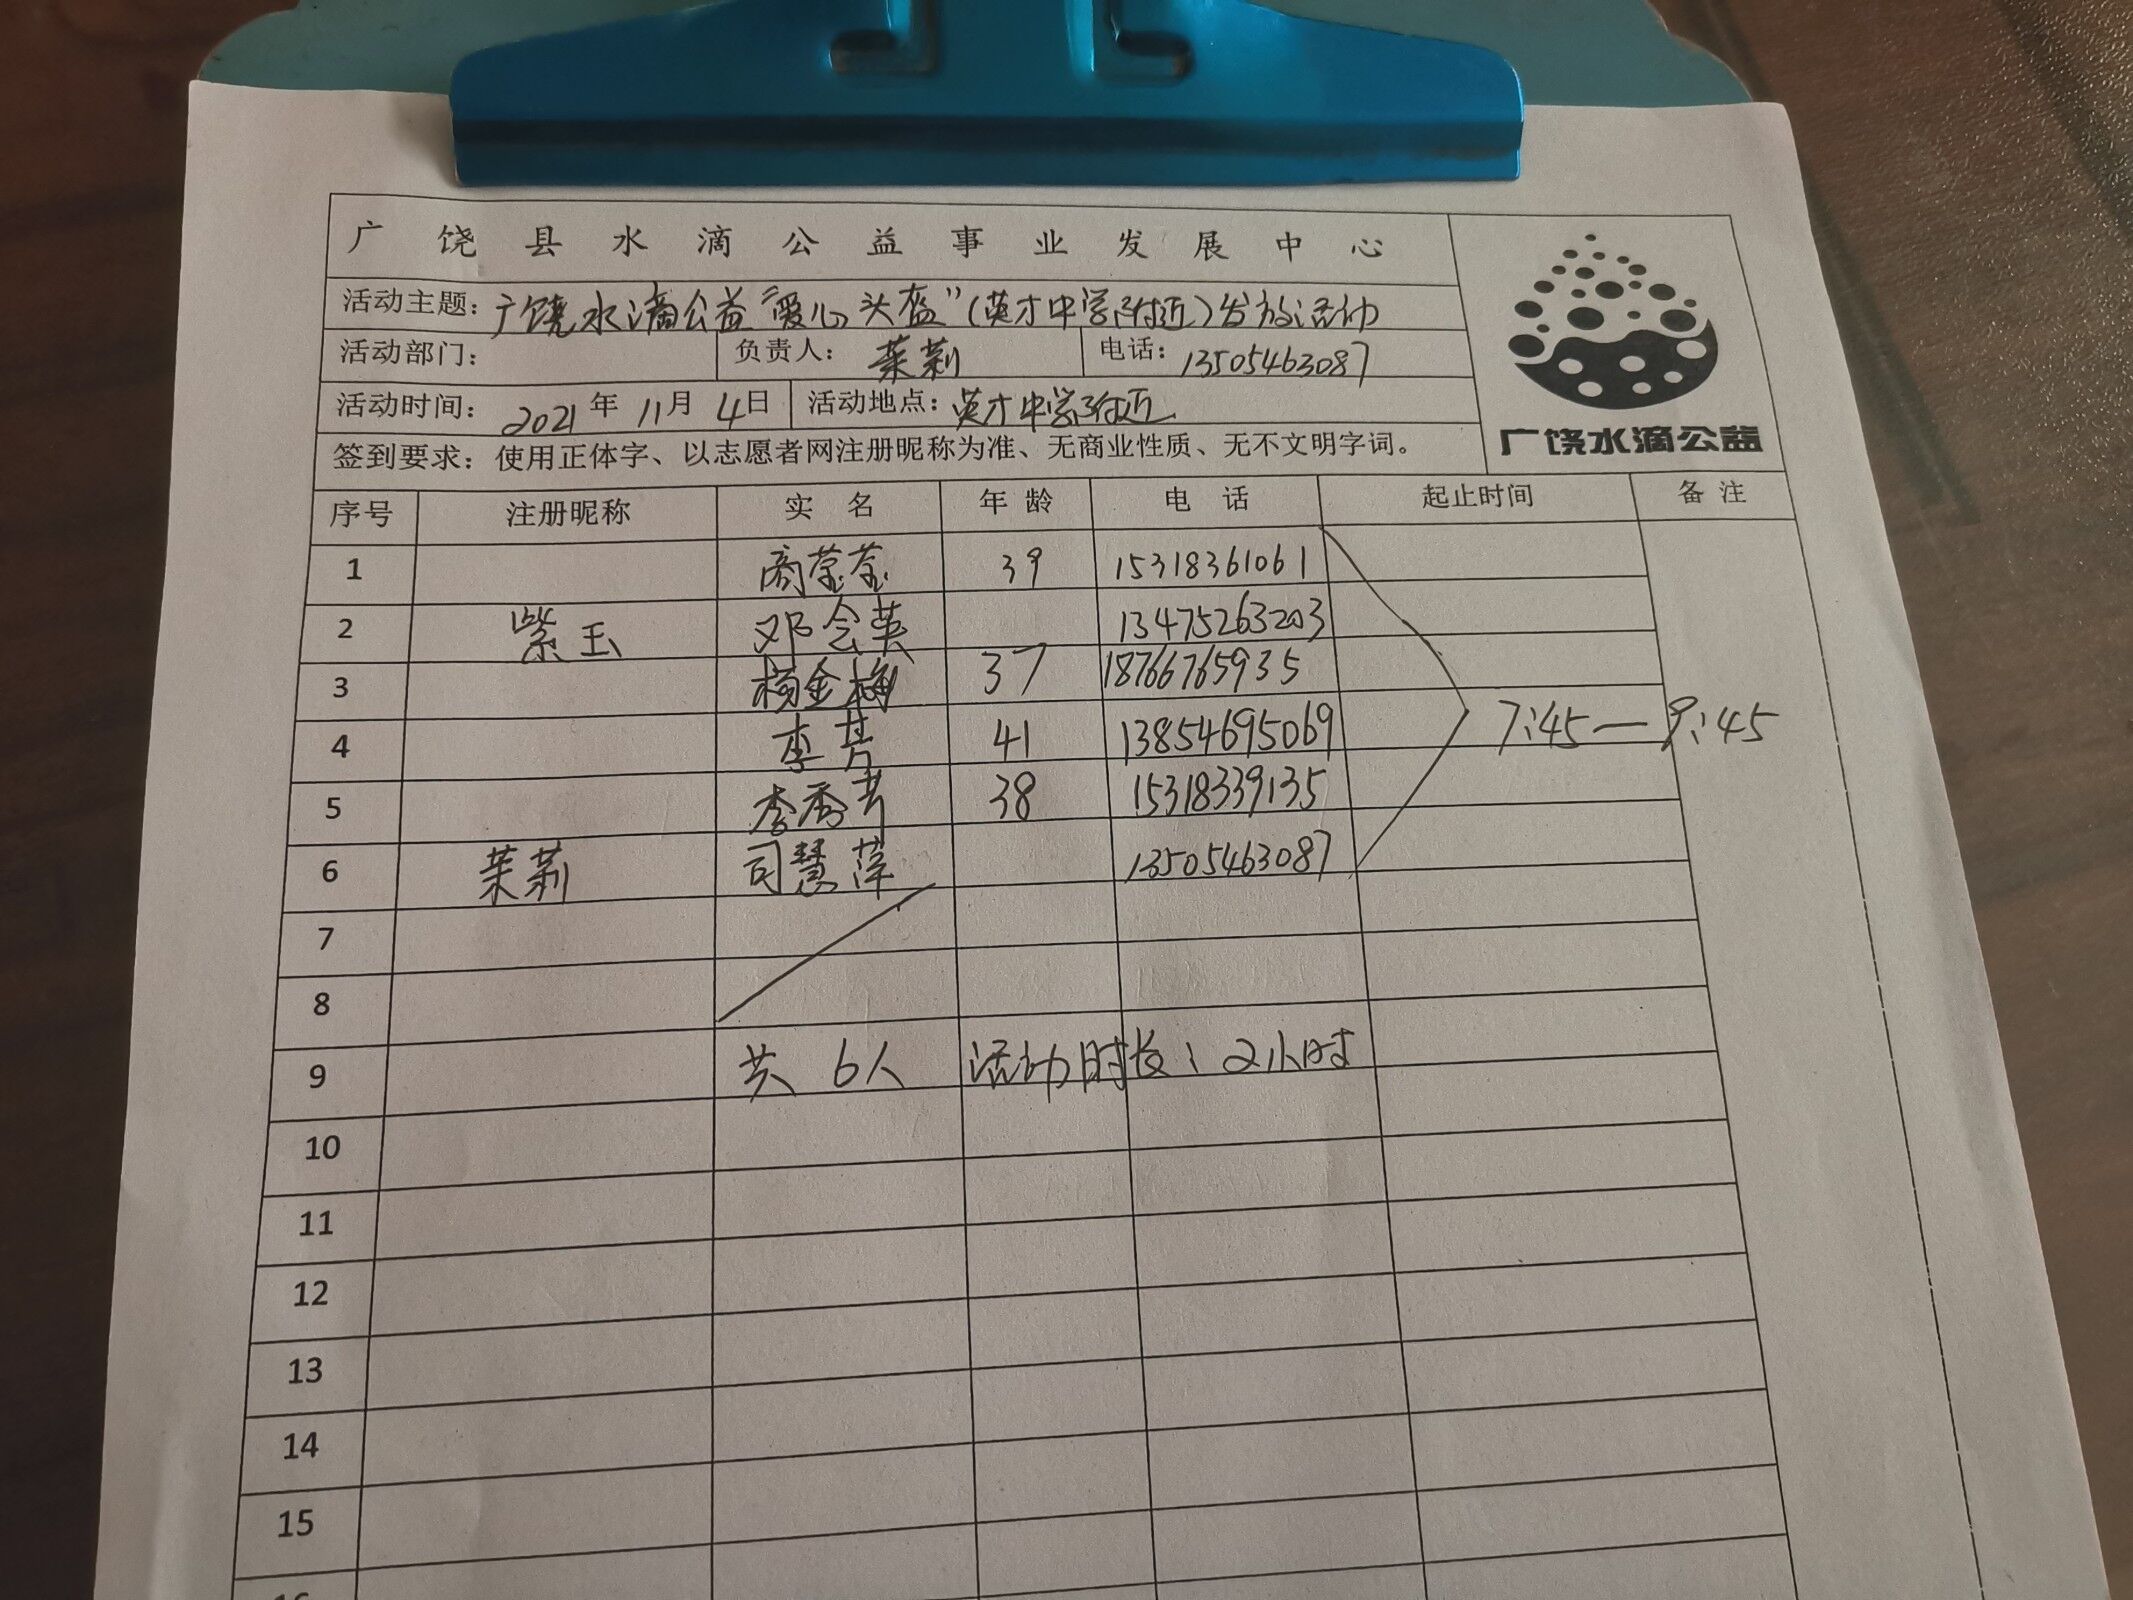 广饶县水滴公益事业发展中心
活动主题：广饶水滴公益"爱心头盔"(英才中学附近)发放活动
活动部门： 负责人：茉莉 电话：13505463087
活动时间：2021年11月4日 活动地点：英才中学附近
广饶水滴公益
签到要求：使用正体字、以志愿者网注册昵称为准、无商业性质、无不文明字词。
序号 注册昵称 实名 年龄 电话 起止时间 备注
1 商莹莹 39 15318361061
2 紫玉 邓会英 13475263203
3 杨金梅 37 18766765935
4 李芳 41 13854695069 7:45—9:45
5 李香芳 38 15318339135
6 茉莉 司慧萍 13505463087
7
8
9 共6人 活动时长：2小时
10
11
12
13
14
15
16